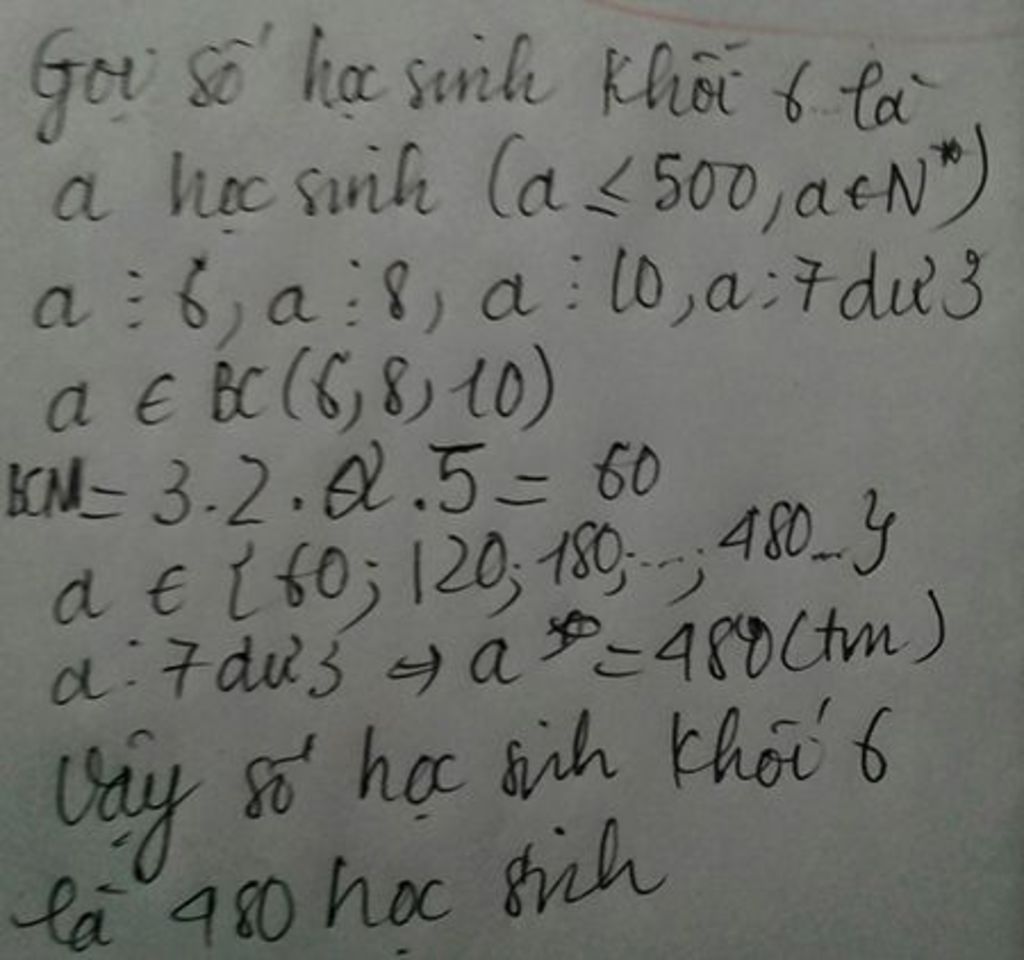 Gọi số học sinh khối 6 là
a học sinh (a ≤ 500, a ∈ N*)
a ⋮ 6, a ⋮ 8, a ⋮ 10, a : 7 dư 3
a ∈ BC(6, 8, 10)
BCNN = 3.2. .5 = 60
a ∈ {60; 120; 180; ...; 480...}
a : 7 dư 3 ⇒ a = 480 (tm)
Vậy số học sinh khối 6
là 480 học sinh